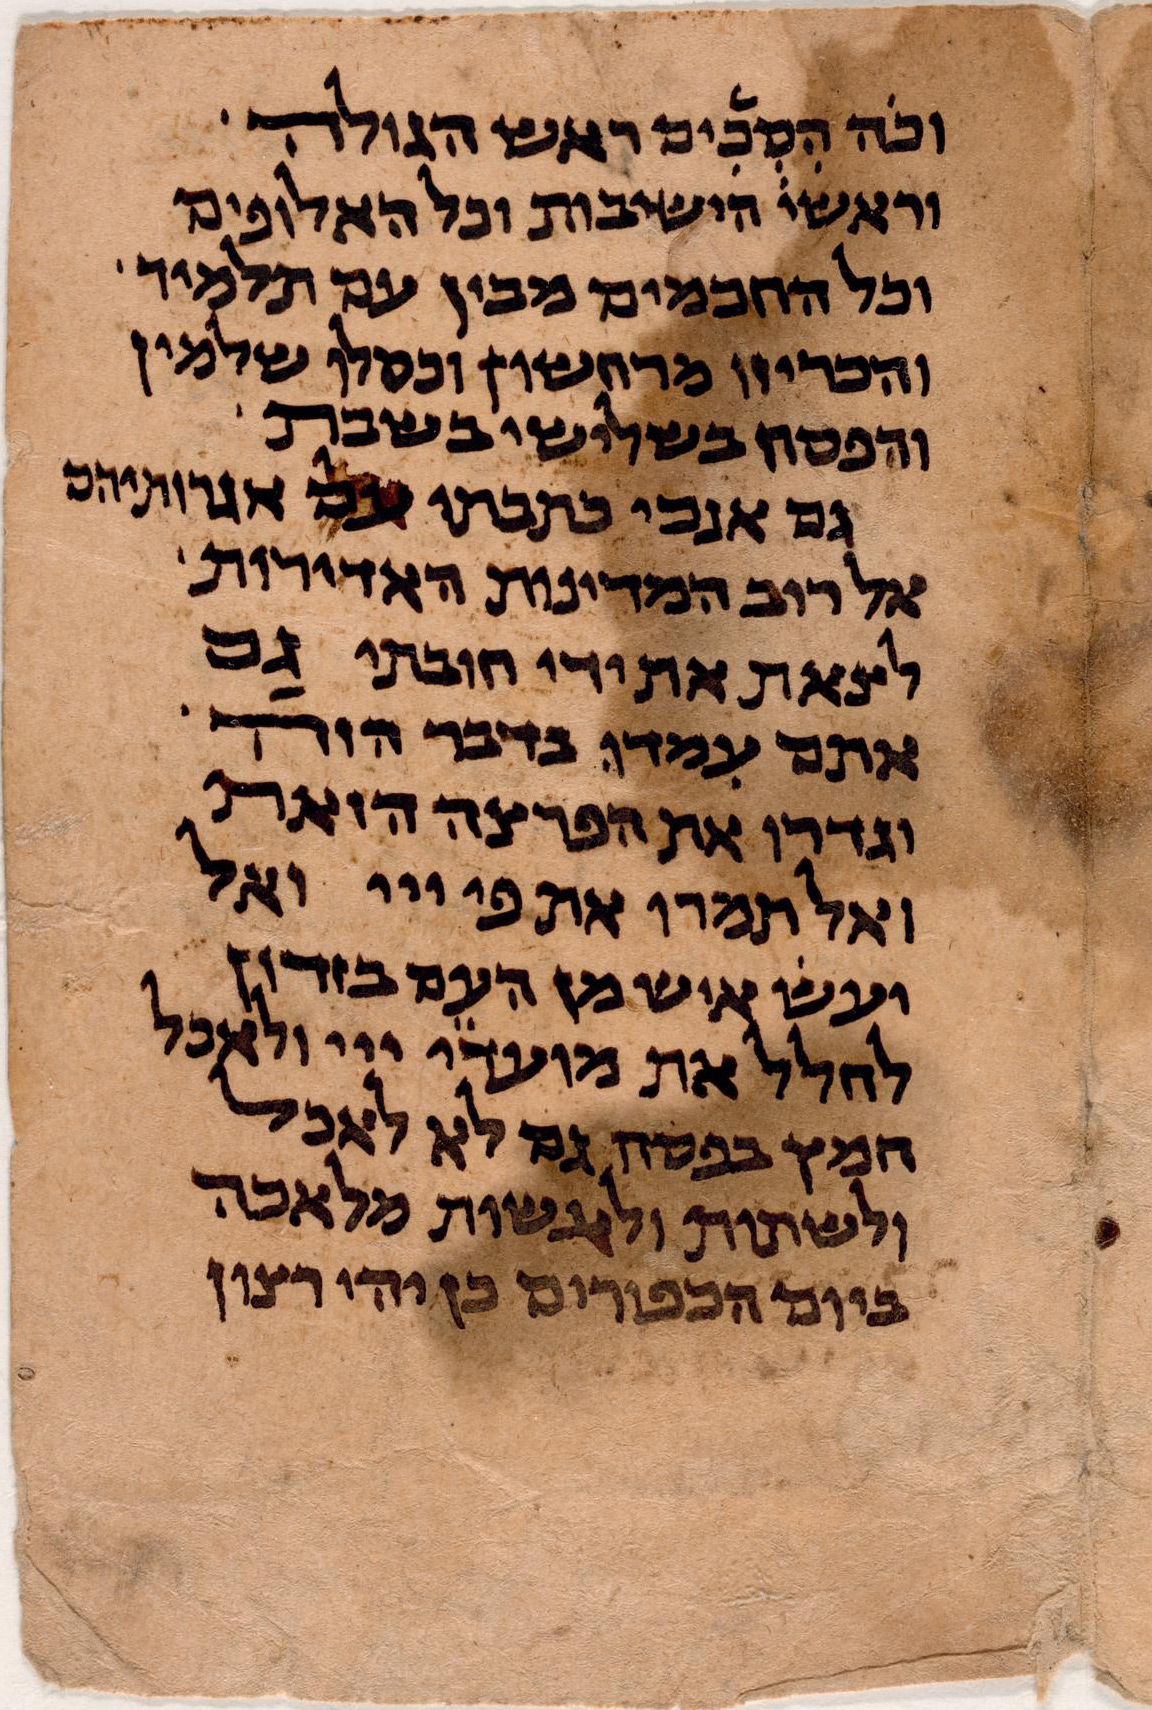 וכה הסכים ראש הגולה
וראשי הישיבות וכל האלופים
וכל החכמים מבין עם תלמיד
והכריזו מרחשון וכסלו שלמין
והפסח בשלישי בשבת
גם אנכי כתבתי על אגרותיהם
אל רוב המדינות האדירות
לצאת את ידי חובתי גם
אתם עמדו בדבר הזה
וגדרו את הפרצה הזאת
ואל תמרו את פי ייי ואל
יעש איש מן העם בזדון
לחלל את מועדי ייי ולאכל
חמץ בפסח גם לא לאכל
ולשתות ולעשות מלאכה
ביום הכפורים כן יהי רצון